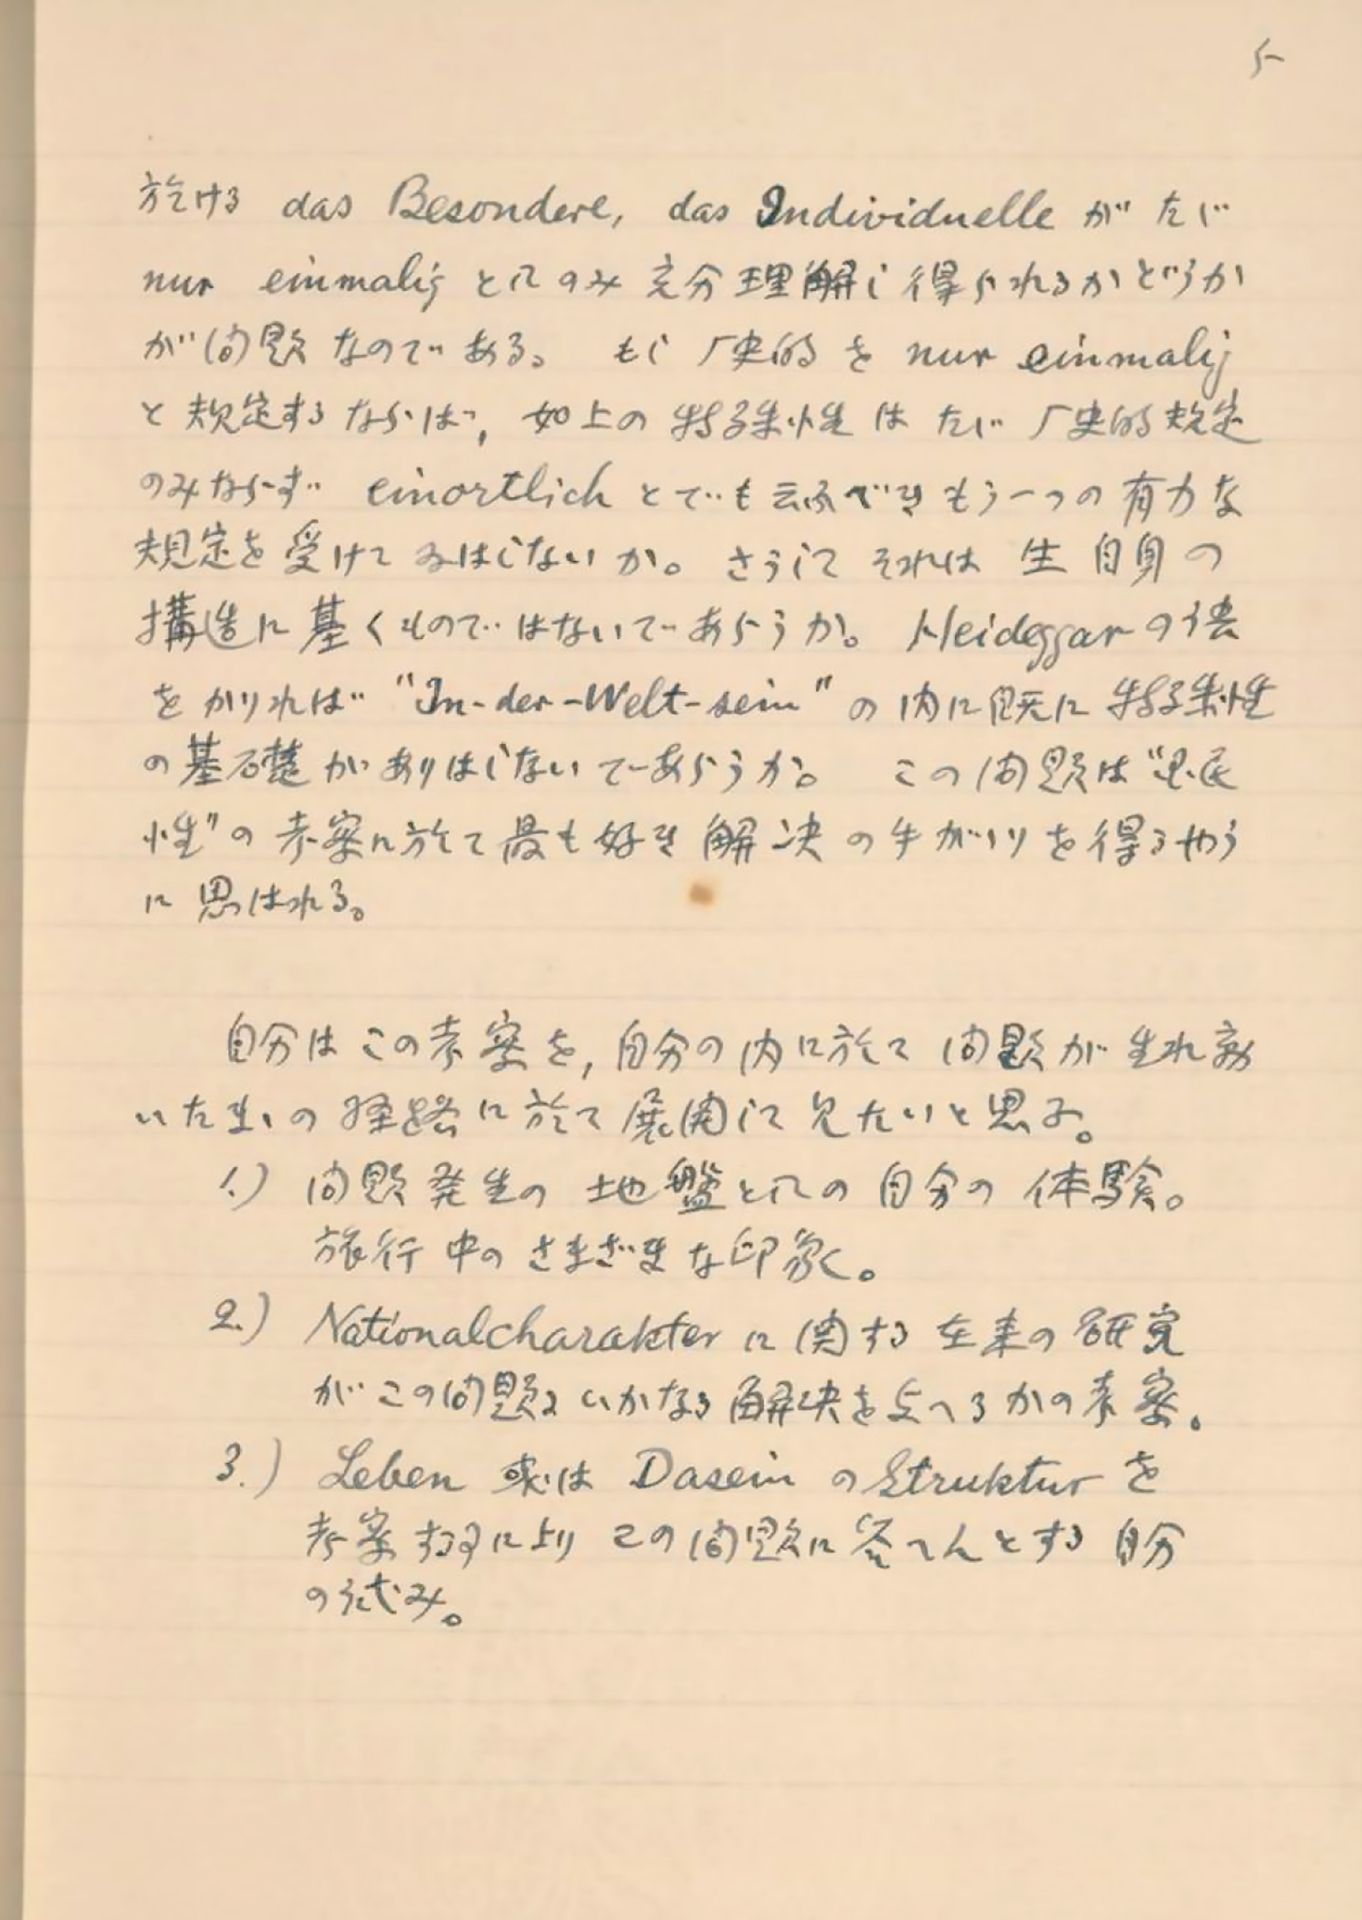 5
於ける das Besondere, das Individuelle が たゞ
nur einmalig としてのみ 充分理解し得られるかどうか
が問題なのである。 もし 歴史的 を nur einmalig
と規定するならば, 如上の特殊性は たゞ 歴史的規定
のみならず einortlich とでも云ふべきもう一つの有力な
規定を受けてゐはしないか。さうして それは 生自身の
構造に基くものではないであらうか。Heideggar の語
をかりれば "In-der-Welt-sein" の内に既に特殊性
の基礎がありはしないであらうか。 この問題は "国民
性" の考案に於て最も好き解決の手がかりを得るやう
に思はれる。
自分はこの考案を, 自分の内に於て問題が生れ動
いたまゝの経路に於て展開して見たいと思ふ。
1.) 問題発生の地盤としての自分の体験。
旅行中のさまざまな印象。
2.) Nationalcharakter に関する在来の研究
がこの問題にいかなる解決を与へるかの考案。
3.) Leben 或は Dasein の Struktur を
考案する事により この問題に答へんとする自分
の試み。